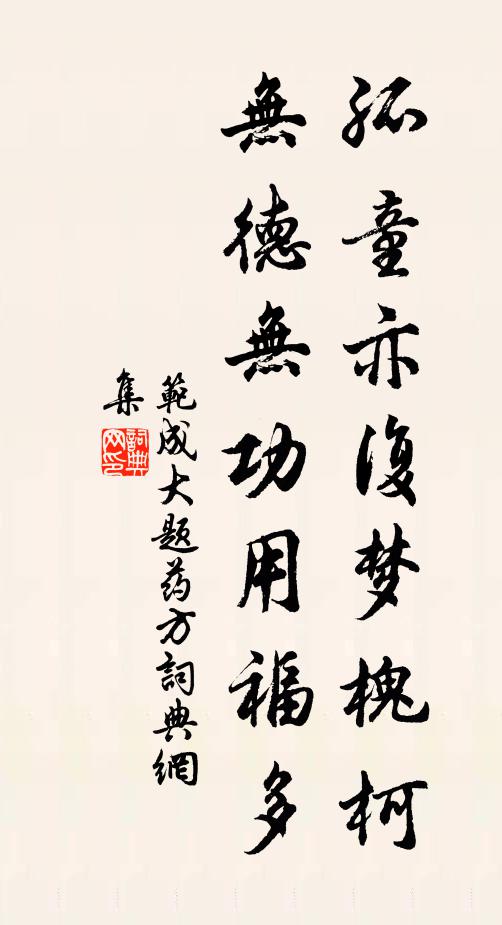 孤童亦復梦槐柯
無德無功用福多
範成大题药方詞典網
集
詞典
网印